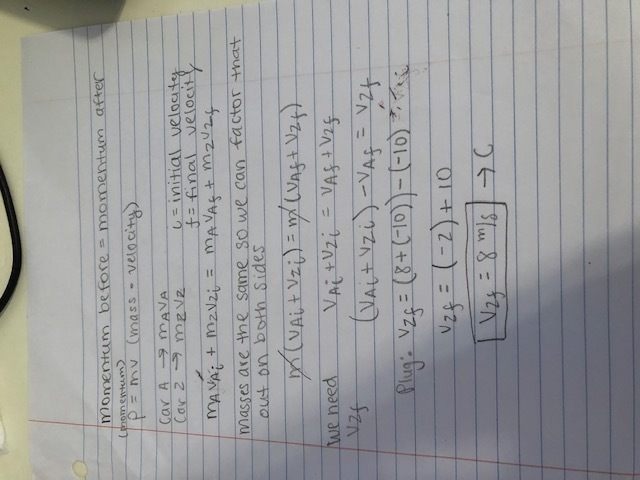 momentum before = momentum after
(momentum)
P = mv (mass • velocity)
Car A → mAVA
Car 2 → m2V2
i = initial velocity
f = final velocity
mAVAi + m2V2i = mAVAf + m2V2f
masses are the same so we can factor that
out on both sides
m(VAi + V2i) = m(VAf + V2f)
We need
V2f
VAi + V2i = VAf + V2f
(VAi + V2i) - VAf = V2f
Plug: V2f = (8 + (-10)) - (-10)
V2f = (-2) + 10
V2f = 8 m/s → C